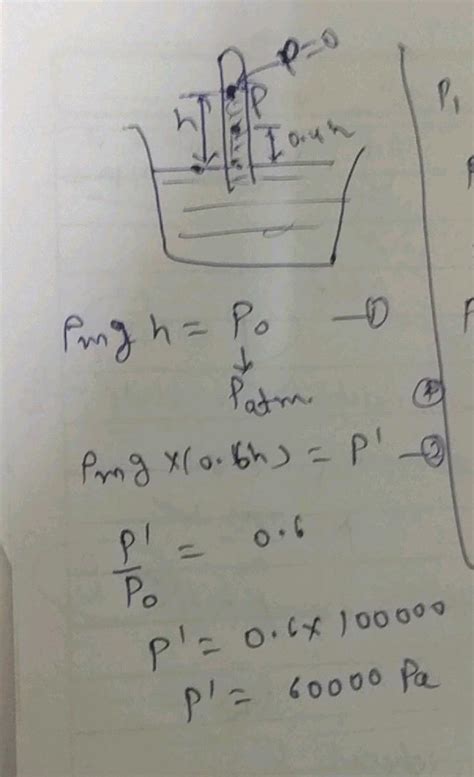 P=0
h
P
0.4h
P₁
ρₘg h = P₀ —①
↓
Patm.
④
ρₘg×(0.6h) = P' —②
P'/P₀ = 0.6
P' = 0.6×100000
P' = 60000 Pa